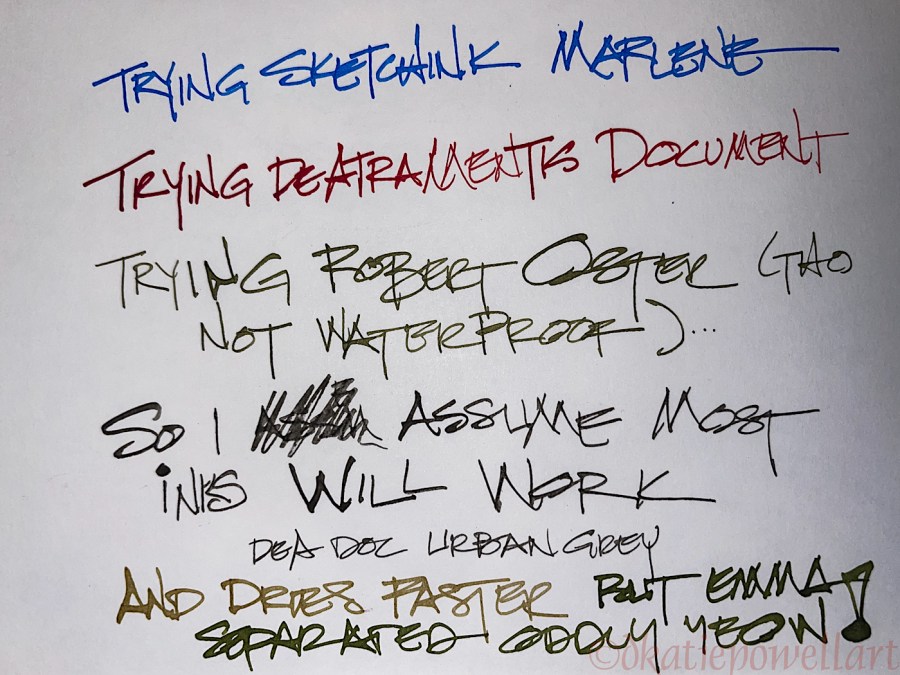 TRYING SKETCHINK MARLENE
TRYING DEATRAMENTIS DOCUMENT
TRYING ROBERT OSTER (TAO
NOT WATERPROOF)...
SO I ASSUME MOST
INKS WILL WORK
DEA DOC URBAN GREY
AND DRIES FASTER BUT EMMA
SEPARATED ODDLY YEOW!
©okatiepowellart